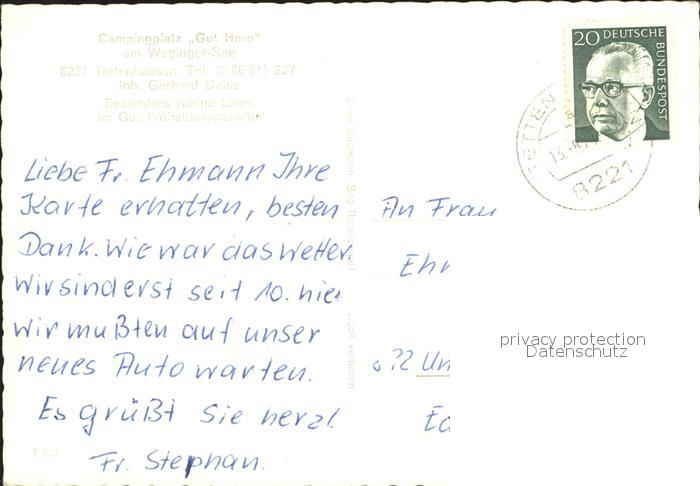 Campingplatz „Gut Horn"
am Waginger-See
8221 Tettenhausen, Tel. (0 86 81) 227
Inh. Gerhard Daise
Besonders ruhige Lage,
im Gut Frühstückspension
20 DEUTSCHE
BUNDESPOST
TETTEN
8221
Liebe Fr. Ehmann Ihre
Karte erhalten, besten
Dank. Wie war das Wetter.
Wir sind erst seit 10. hier
wir mußten auf unser
neues Auto warten.
Es grüßt Sie herzl.
Fr. Stephan.
Ernst Baumann, Bad
verboten
An Frau
Eh
Un
privacy protection
Datenschutz